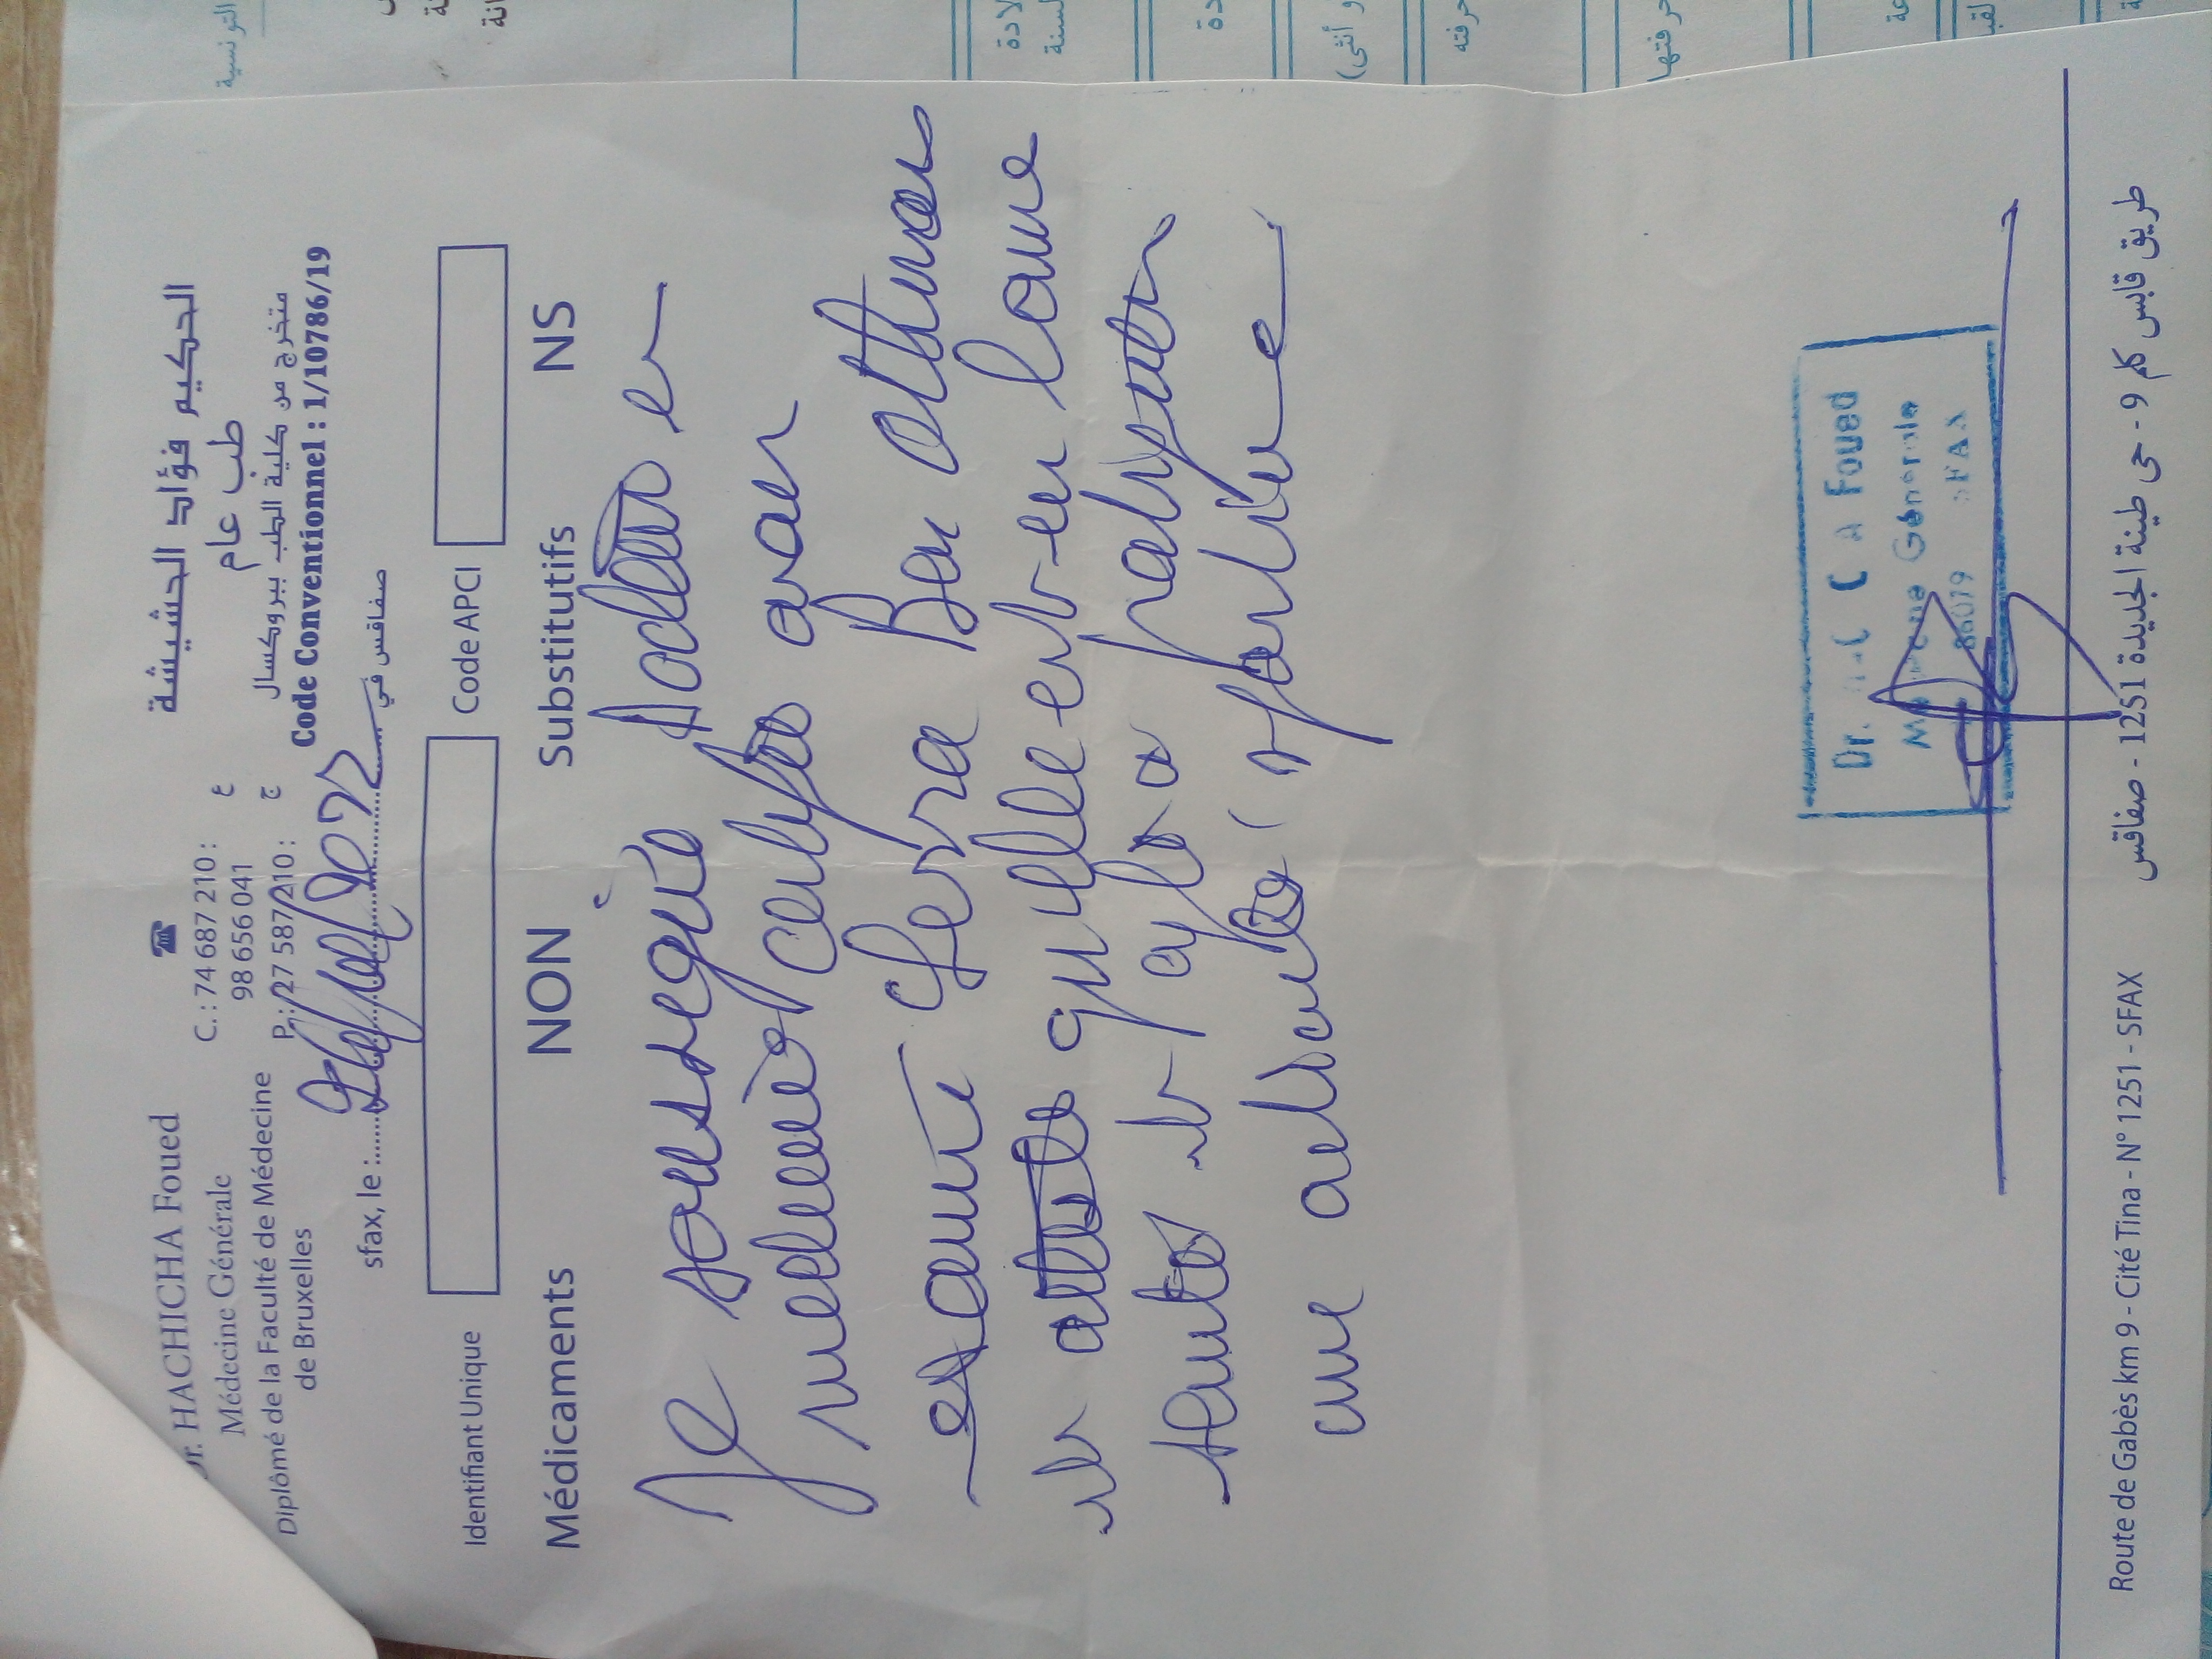 Dr. HACHICHA Foued
Médecine Générale
Diplômé de la Faculté de Médecine
de Bruxelles
☎
C. : 74 687 210 : ع
98 656 041
P. : 27 587 210 : ج
الحكيم فؤاد الحشيشة
طب عام
متخرج من كلية الطب ببروكسال
Code Conventionnel : 1/10786/19
sfax, le : 2022 صفاقس في
Identifiant Unique
Code APCI
Médicaments NON Substitutifs NS
Je soussigné Docteur en
médecine certifie avoir
examiné Chevra Ben Othman
et atteste qu'elle est en bonne
santé et apte à pratiquer
une activité sportive
Dr. C A Foued
Générale
86079 SFAX
Route de Gabès km 9 - Cité Tina - N° 1251 - SFAX
طريق قابس كلم 9 - حي طينة الجديدة 1251 - صفاقس
التونسية
لادة
السنة
دة
و أنثى)
حرفته
حرفتها
عة